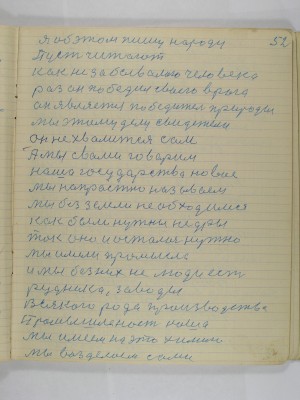 52
Я об этом пишу народу
Пуст читают
как незабываемо человека
раз он победил своего врага
он является победител природы
мы этому делу свидетели
он не хвалится сам
А мы свами говарим
наша государства новые
мы напрастно называем
мы без земли не обходимся
как были нужны недры
так оно и осталос нужно
мы имели промысла
и мы без них не люди ест
рудника, заводы
всякого рода производства
Громышленост наша
мы имеем на это химию
мы возделоем сами